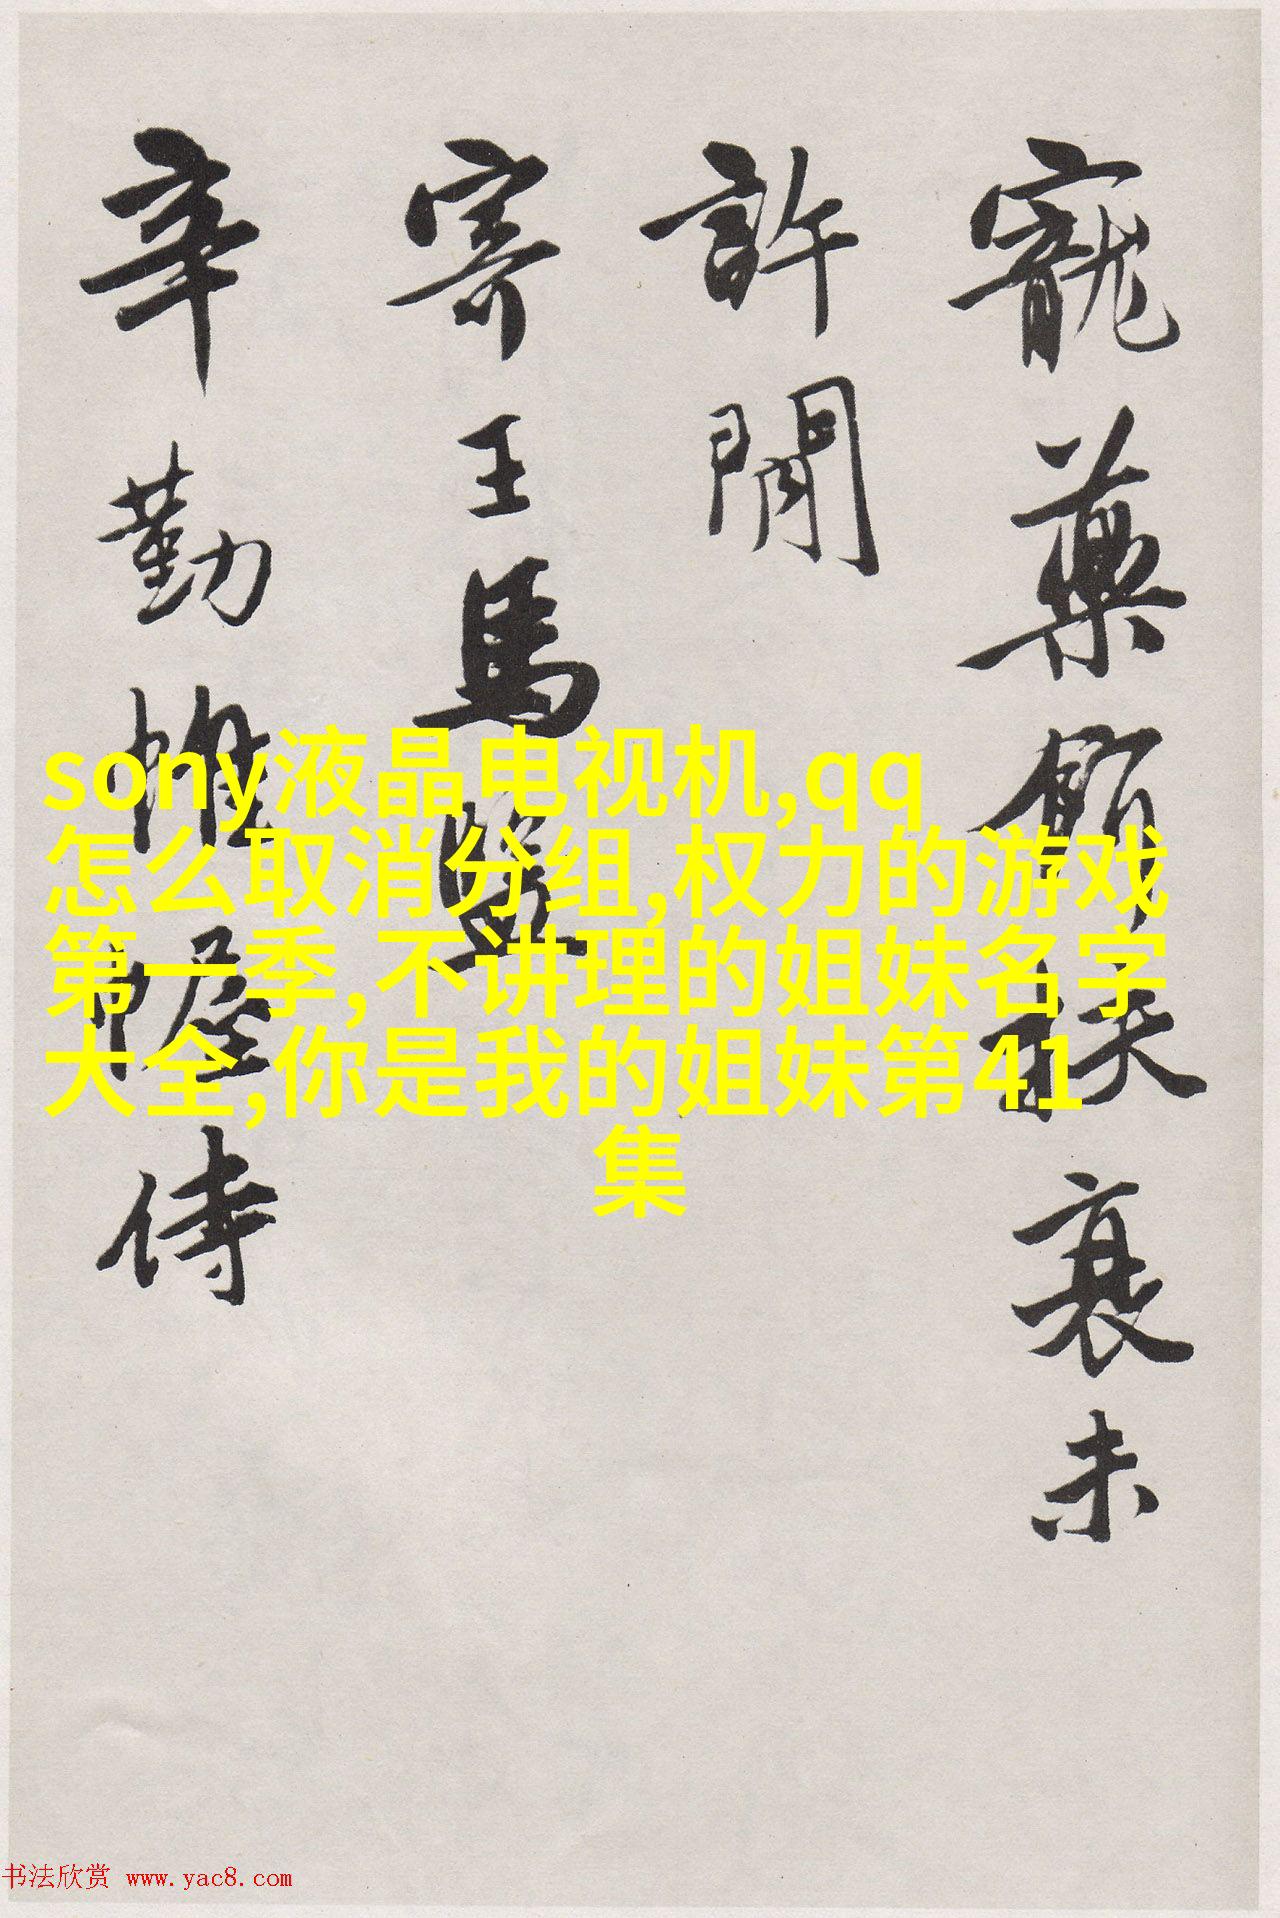 寵藥扶衰未
許閒
寄王馬監
辛勤帷幄侍
sony液晶电视机,qq
怎么取消分组,权力的游戏
第一季,不讲理的姐妹名字
大全,你是我的姐妹第41
集
书法欣赏 www.yac8.com